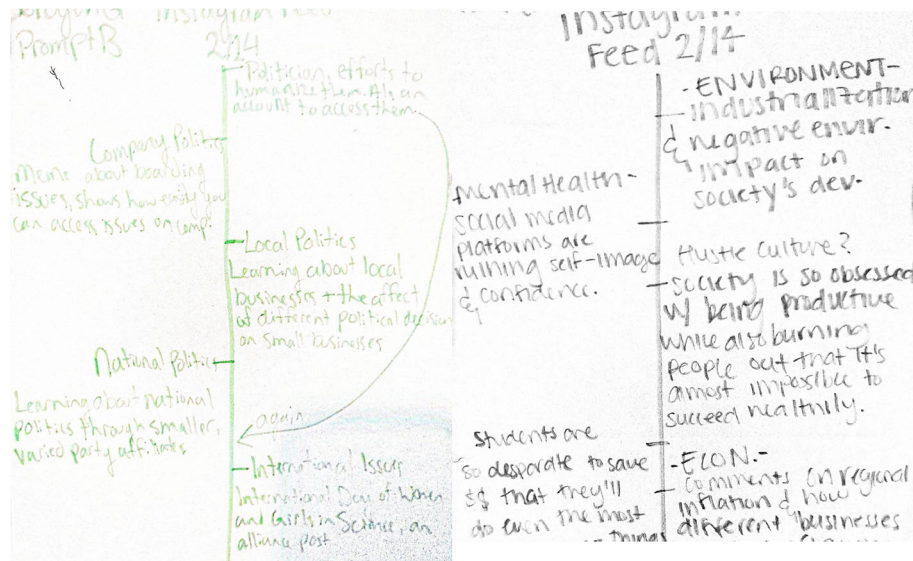 Instagram Feed
Prompt B 2/14
-Politician, efforts to
humanize them. Also an
account to access them.
Company Politics
Meme about boarding
issues, shows how easily you
can access issues on comp.
-Local Politics
Learning about local
businesses + the affect
of different political decision
on small businesses
National Politics
Learning about national
politics through smaller,
varied party affiliates
again
-International Issues
International Day of Women
and Girls in Science, an
alliance post
Instagram
Feed 2/14
-ENVIRONMENT-
industrialization
& negative envir.
impact on
society's dev.
Mental Health-
social media
platforms are
ruining self-image
& confidence.
Hustle Culture?
-society is so obsessed
w/ being productive
while also burning
people out that it's
almost impossible to
succeed healthily.
Students are
so desparate to save
$$ that they'll
do even the most
things
-ECON.-
comments on regional
inflation & how
different businesses